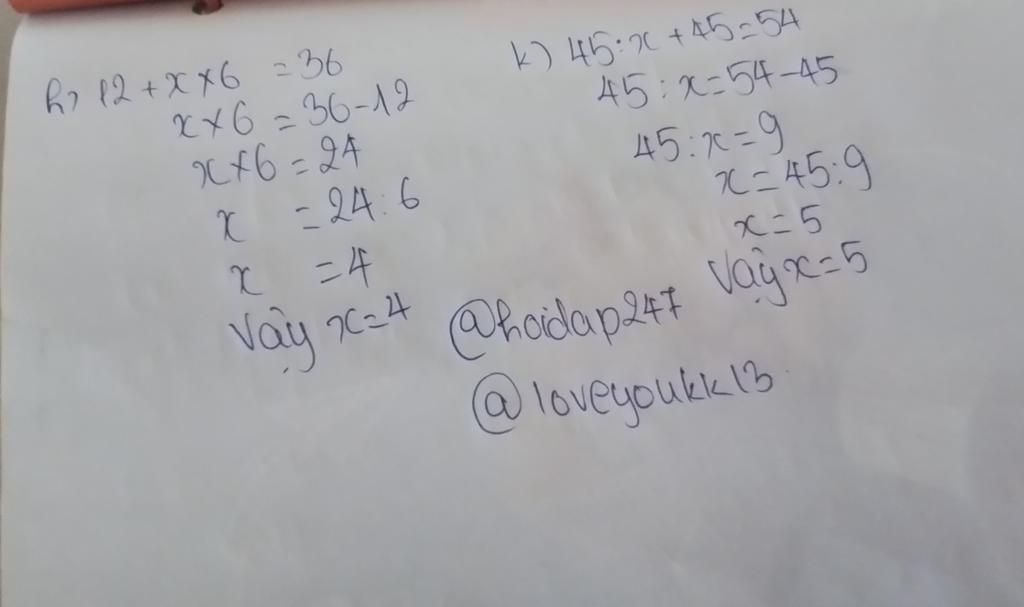 h, 12 + x × 6 = 36
x × 6 = 36 - 12
x × 6 = 24
x = 24 : 6
x = 4
Vậy x = 4
k) 45 : x + 45 = 54
45 : x = 54 - 45
45 : x = 9
x = 45 : 9
x = 5
Vậy x = 5
@hoidap247
@loveyoukk13